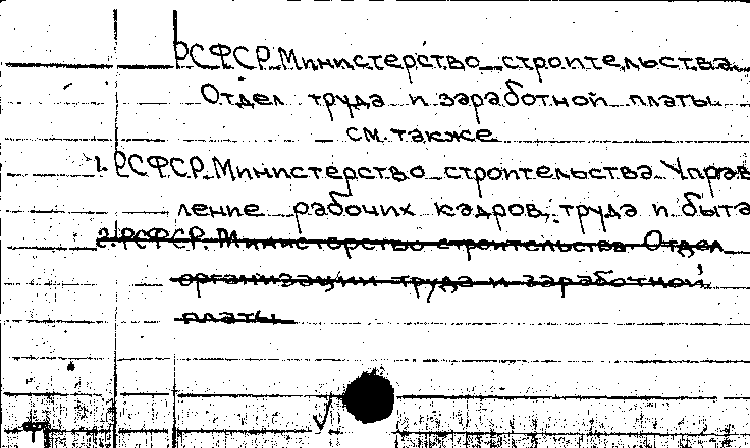 РСФСР. Министерство строительства.
Отдел труда и заработной платы
см. также
1. РСФСР. Министерство строительства. Управ
ление рабочих кадров, труда и быта
2. РСФСР. Министерство строительства. Отдел
организации труда и заработной
платы